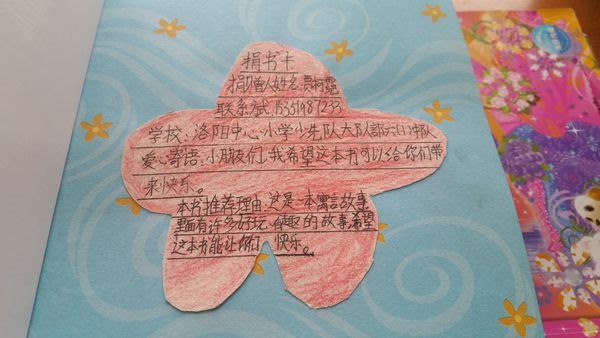 捐书卡
捐赠人姓名:
联系方式:15351987233
学校:洛阳中心小学少先队大队部六(1)中队
爱心寄语:小朋友们,我希望这本书可以给你们带
来快乐。
本书推荐理由:这是一本寓言故事
里面有许多好玩、有趣的故事,希望
这本书能让你们快乐。